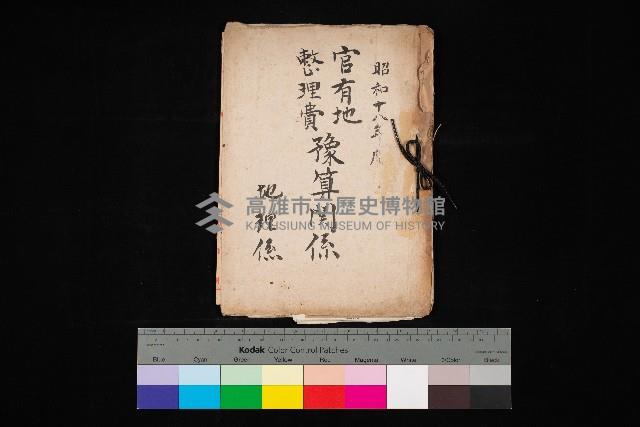 昭和十八年度
官有地
整理費
豫算関係
地理係
高雄市立歷史博物館
KAOHSIUNG MUSEUM OF HISTORY
Kodak Color Control Patches
Blue Cyan Green Yellow Red Magenta White 3/Color Black